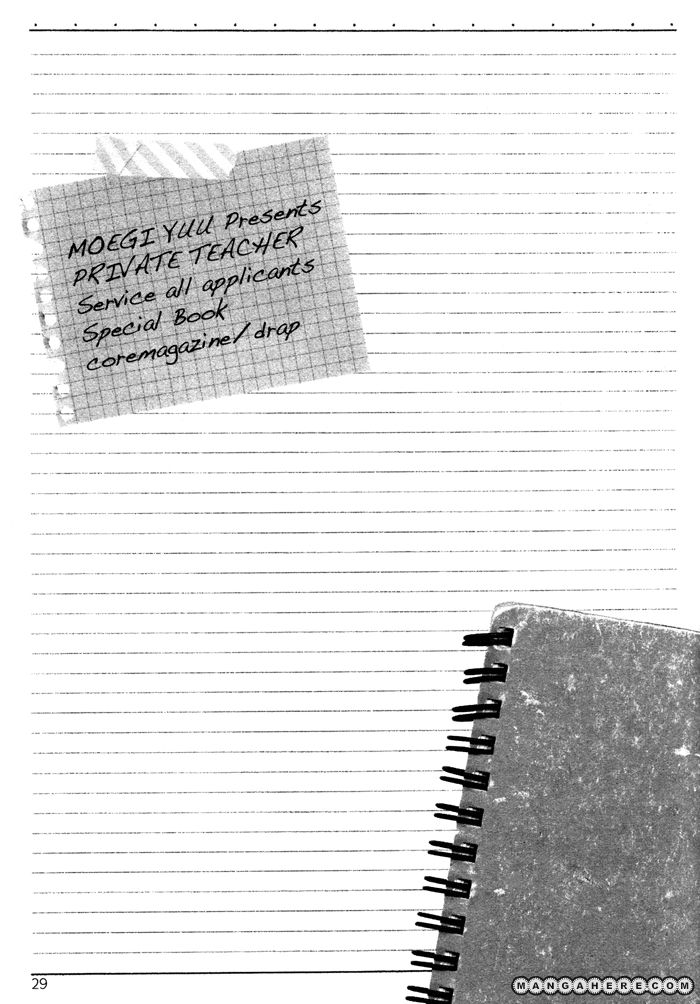 MOEGI YUU Presents
PRIVATE TEACHER
Service all applicants
Special Book
coremagazine/drap
29
MANGAHERE.COM